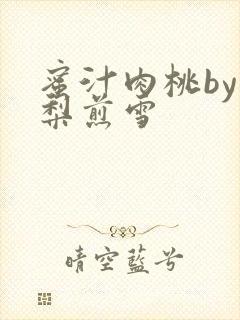 蜜汁肉桃by
梨煎雪
晴空蓝兮